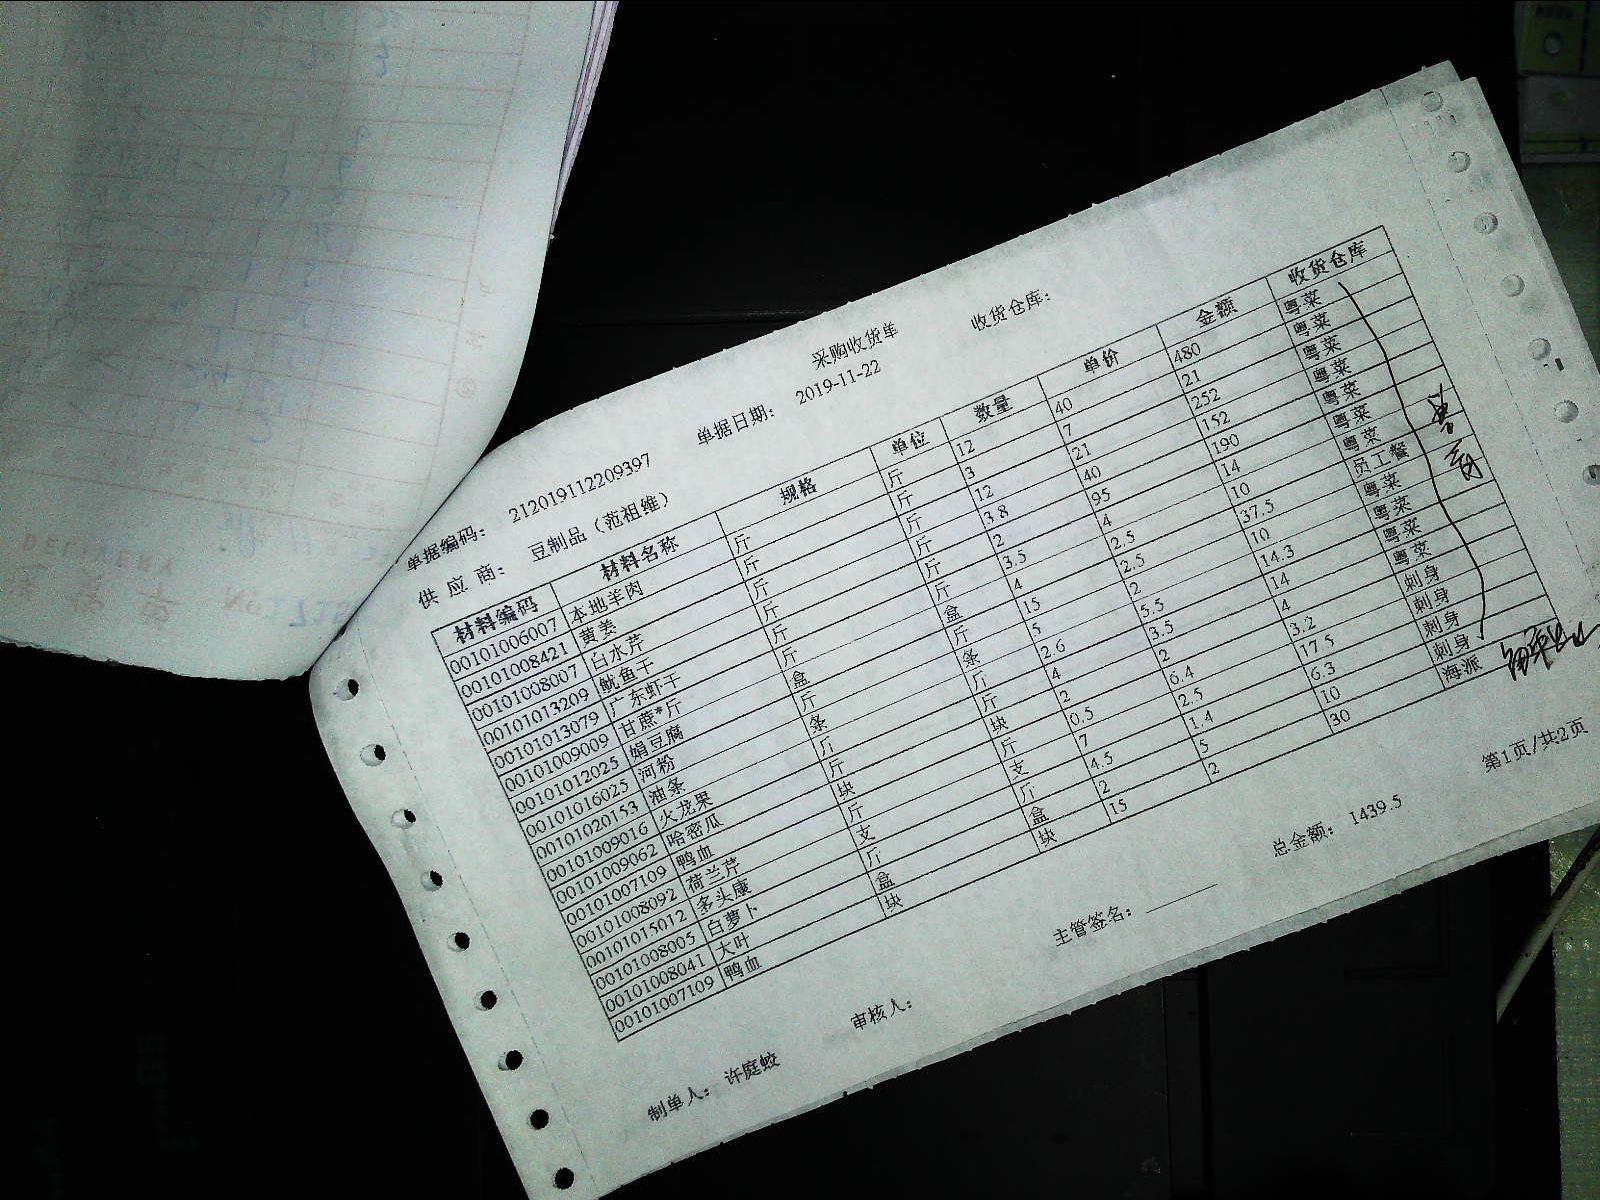 采购收货单
单据编码： 212019112209397 单据日期： 2019-11-22 收货仓库：
供 应 商： 豆制品（范祖维）
材料编码 材料名称 规格 单位 数量 单价 金额 收货仓库
00101006007 本地羊肉 斤 斤 12 40 480 粤菜
00101008421 黄姜 斤 斤 3 7 21 粤菜
00101008007 白水芹 斤 斤 12 21 252 粤菜
00101013209 鱿鱼干 斤 斤 3.8 40 152 粤菜
00101013079 广东虾干 斤 斤 2 95 190 粤菜
00101009009 甘蔗*斤 斤 斤 3.5 4 14 粤菜
00101012025 娟豆腐 盒 盒 4 2.5 10 粤菜
00101016025 河粉 斤 斤 15 2.5 37.5 员工餐
00101020153 油条 条 条 5 2 10 粤菜
00101009016 火龙果 斤 斤 2.6 5.5 14.3 粤菜
00101009062 哈密瓜 斤 斤 4 3.5 14 粤菜
00101007109 鸭血 块 块 2 2 4 粤菜
00101008092 荷兰芹 斤 斤 0.5 6.4 3.2 刺身
00101015012 多头康 支 支 7 2.5 17.5 刺身
00101008005 白萝卜 斤 斤 4.5 1.4 6.3 刺身
00101008041 大叶 盒 盒 2 5 10 刺身
00101007109 鸭血 块 块 15 2 30 海派
第1页/共2页
总金额： 1439.5
制单人： 许庭蛟 审核人： 主管签名：